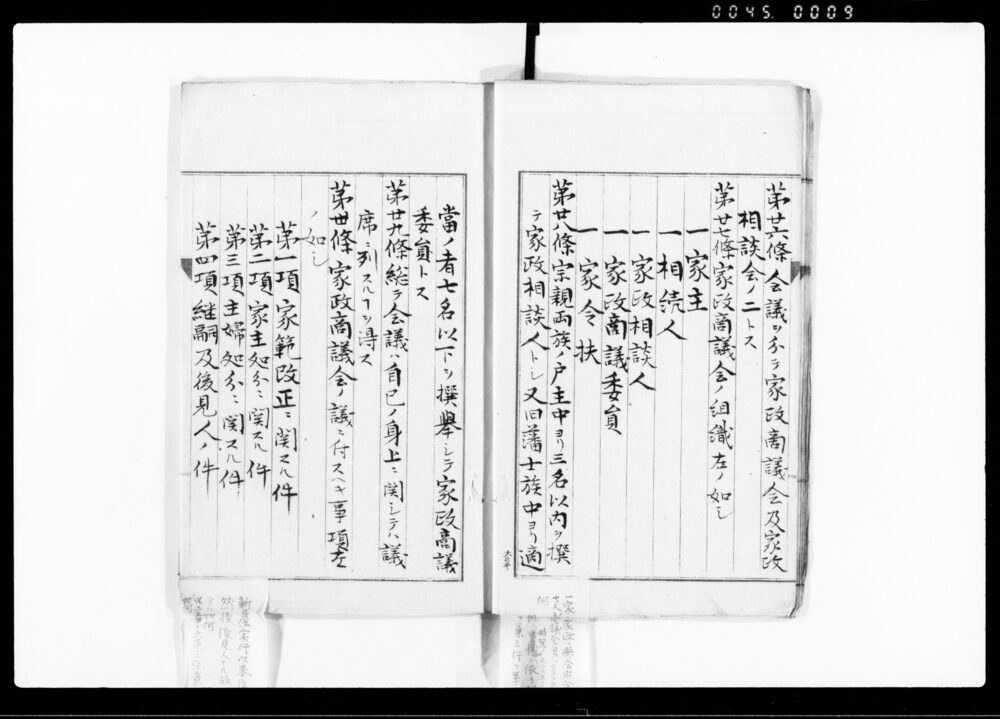 0045. 0009
第廿六條 会議ヲ分テ家政商議会及家政
相談会ノ二トス
第廿七條 家政商議会ノ組織左ノ如シ
一 家主
一 相続人
一 家政相談人
一 家政商議委員
一 家令扶
第廿八條 宗親両族ノ戸主中ヨリ三名以内ヲ撰
テ家政相談人トシ又旧藩士族中ヨリ適
當ノ者七名以下ヲ撰擧シテ家政商議
委員トス
第廿九條 総テ会議ハ自已ノ身上ニ関シテハ議
席ニ列スルヿヲ得ス
第丗條 家政商議会ノ議ニ付スヘキ事項左
ノ如シ
第一項 家範改正ニ関スル件
第二項 家主処分ニ関スル件
第三項 主婦処分ニ関スル件
第四項 継嗣及後見人ノ件